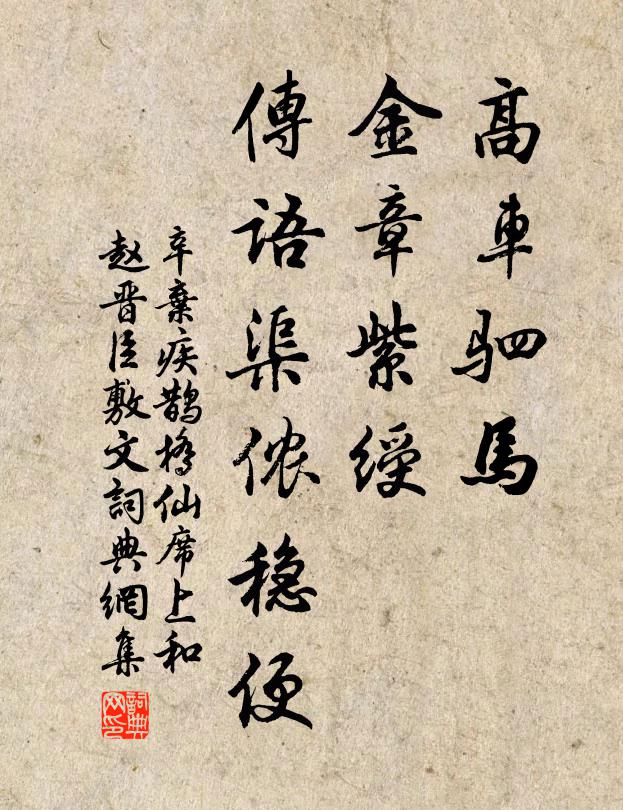 高車驷馬
金章紫綬
傳語渠侬稳便
辛棄疾鹊橋仙席上和
赵晋臣敷文詞典網集
詞典
网印